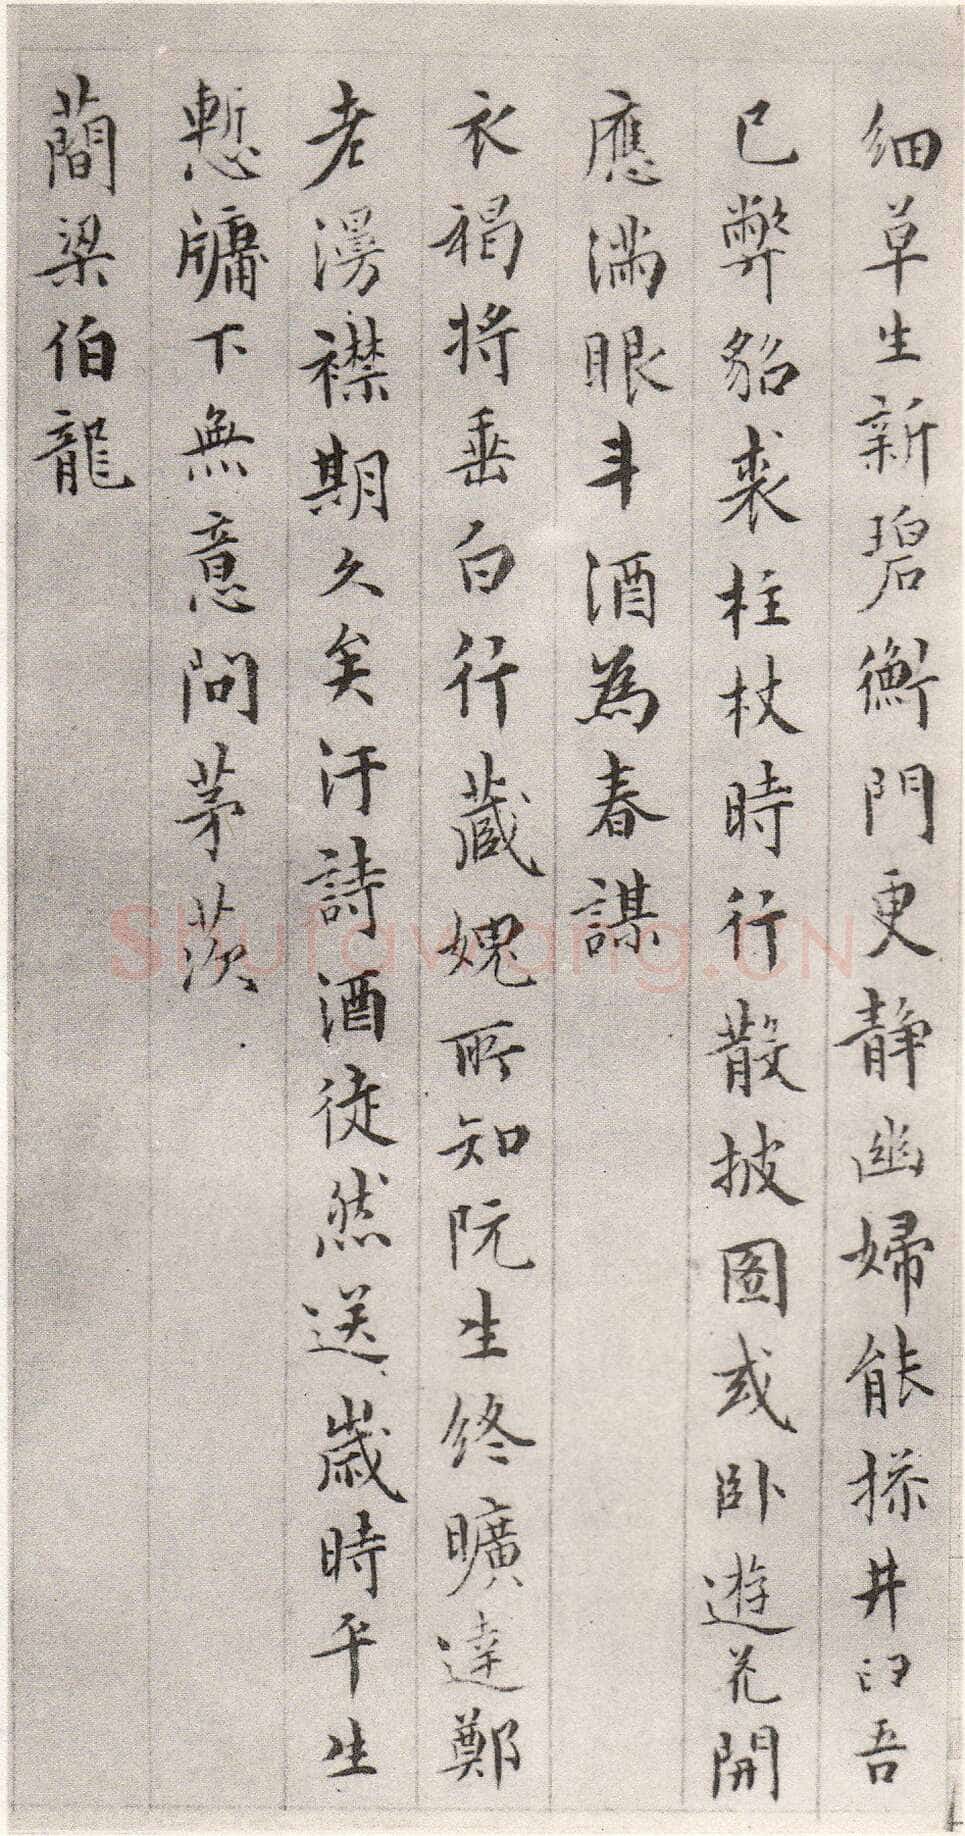 细草生新碧衡門更静幽婦能操井臼吾
已弊貂裘柱杖時行散披圖或卧遊花開
應滿眼斗酒為春謀
衣褐将垂白行蔵媿所知阮生終曠達鄭
老漫襟期久矣汙詩酒徒然送歲時平生
慙牗下無意問茅茨
蕳梁伯龍
Shufawang.CN